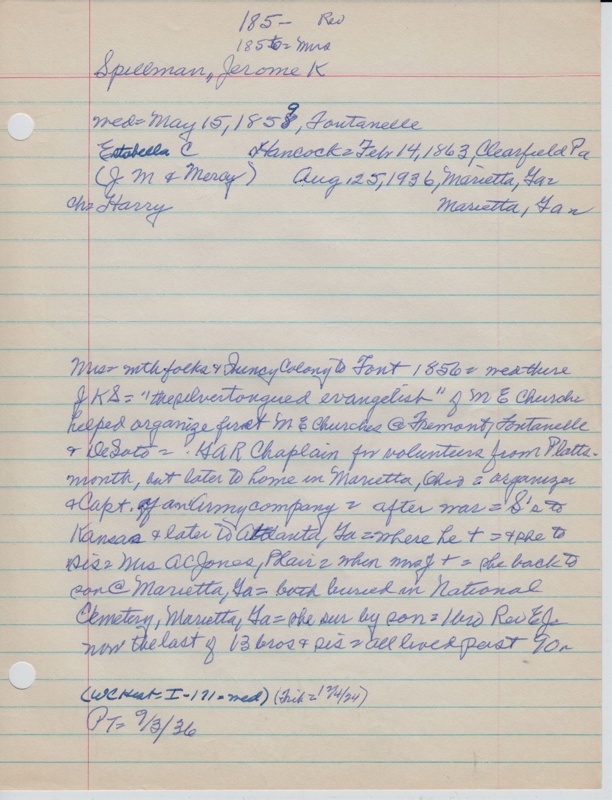 185- Rev
1856= Mrs
Spillman, Jerome K
wed= May 15, 1859, Fontanelle
Estabella C Hancock= Feb 14, 1863, Clearfield Pa
(J M & Mercy) Aug 25, 1936, Marietta, Ga=
ch= Harry Marietta, Ga=
Mrs= with folks & Quincy Colony to Font 1856= wed there
J K S= "the silver tongued evangelist" of M E Church=
helped organize first M E Churches @ Fremont, Fontanelle
& DeSoto= GAR Chaplain for volunteers from Platts-
mouth, but later to home in Marietta, Ohio= organizer
& Capt. of an Army company= after war= S's to
Kansas & later to Atlanta, Ga= where he += & she to
sis= Mrs A C Jones, Blair= when Mrs J += she back to
son @ Marietta, Ga= both buried in National
Cemetery, Marietta, Ga= she sur by son= 1 bro Rev E J=
now the last of 13 bros & sis= all lived past 70=
(WC Hist= I-171=wed) (Trib= 12/4/24)
PT= 9/3/36